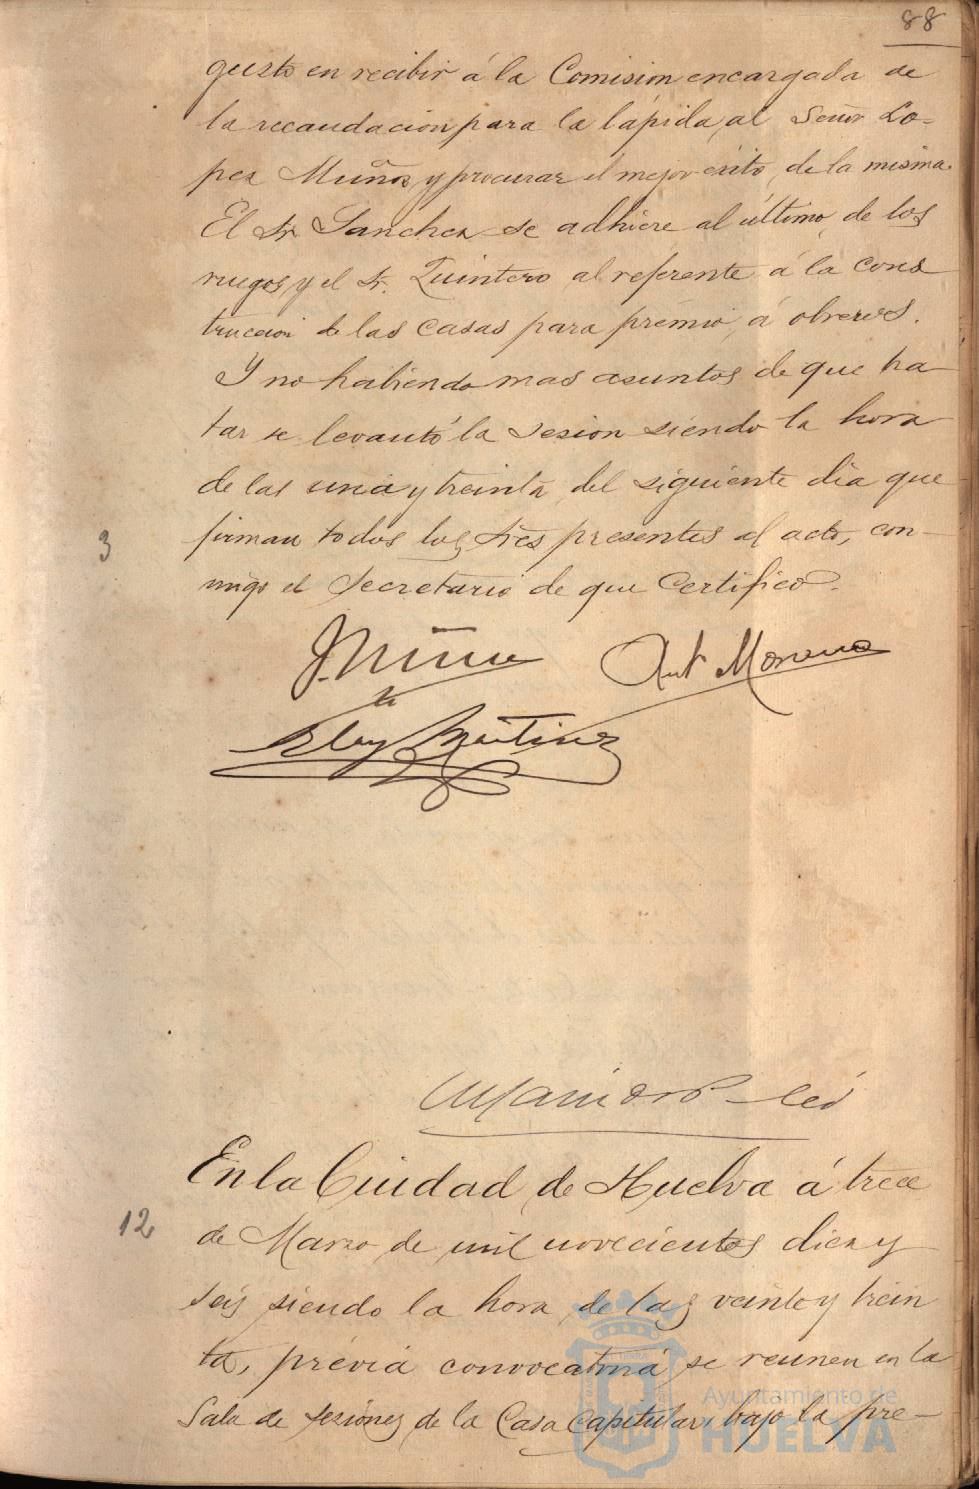 88
gusto en recibir á la Comision encargada de
la recaudación para la lápida al Señor Lo-
pez Muñoz y procurar el mejor éxito, de la misma.
El Sr. Sanchez se adhiere al último, de los
ruegos y el Sr. Quintero al referente á la cons
trucción de las casas para premio, á obreros.
Y no habiendo mas asuntos de que tra
tar se levantó la sesion siendo la hora
de las una y treinta, del siguiente dia que
firman todos los Sres presentes al acto, con-
3
migo el Secretario de que Certifico.
Ant Moreno
Eloy Martinez
En la Ciudad de Huelva á trece
12
de Marzo de mil novecientos diez y
seis siendo la hora de las veinte y trein
ta, prévia convocatoria se reunen en la
Sala de sesiones de la Casa Capitular, bajo la pre-
Ayuntamiento de
HUELVA